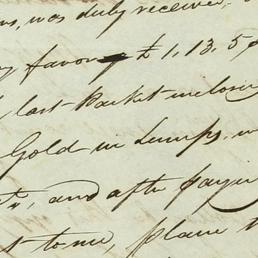 was duly receiver,
favor £ 1,13.5
last Packet inclosin
Gold in Lumps, w
and after payin
t to me, place t